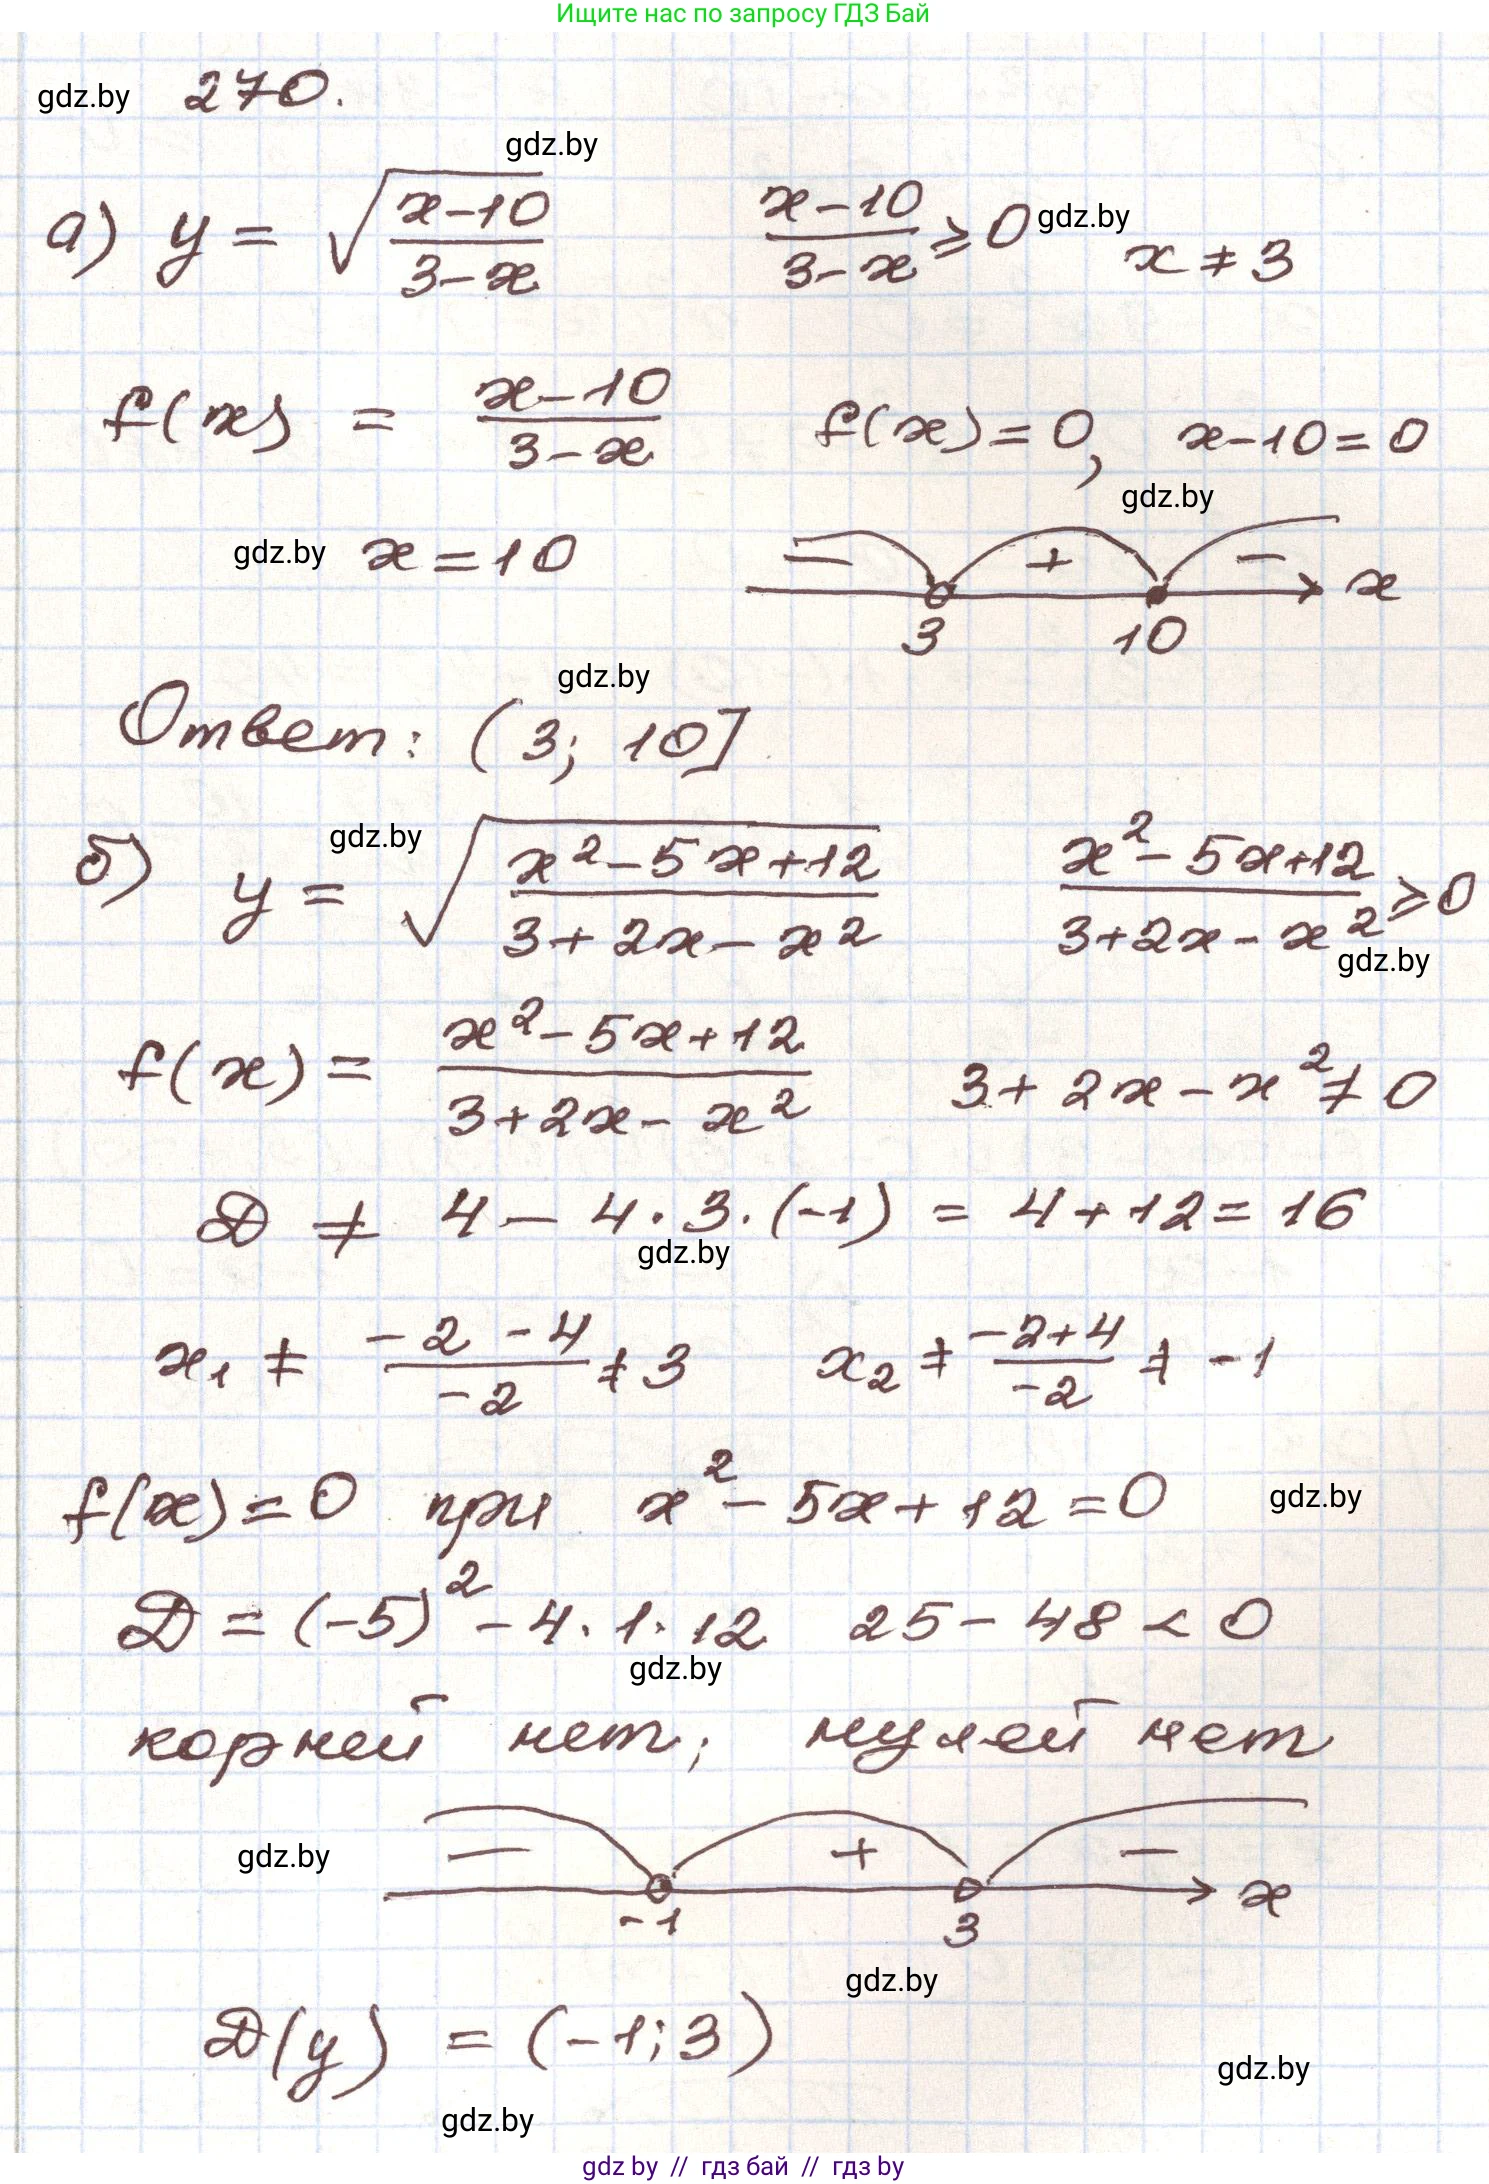 Ищите нас по запросу ГДЗ Бай
gdz.by 270.
gdz.by
а) y = √((x-10)/(3-x)) (x-10)/(3-x) ⩾ 0 gdz.by x ≠ 3
f(x) = (x-10)/(3-x) f(x) = 0, x-10 = 0
gdz.by
gdz.by x = 10 − + − x
3 10
gdz.by
Ответ: (3; 10]
б) gdz.by y = √((x²-5x+12)/(3+2x-x²)) (x²-5x+12)/(3+2x-x²) ⩾ 0
gdz.by
f(x) = (x²-5x+12)/(3+2x-x²) 3+2x-x² ≠ 0
D ≠ 4 - 4·3·(-1) = 4+12 = 16
gdz.by
x₁ ≠ (-2-4)/(-2) ≠ 3 x₂ ≠ (-2+4)/(-2) ≠ -1
f(x) = 0 при x²-5x+12 = 0 gdz.by
D = (-5)² - 4·1·12 25-48 < 0
gdz.by
корней нет; нулей нет
gdz.by − + − x
-1 3
gdz.by
D(y) = (-1; 3)
gdz.by
gdz.by
gdz by // гдз бай // гдз by